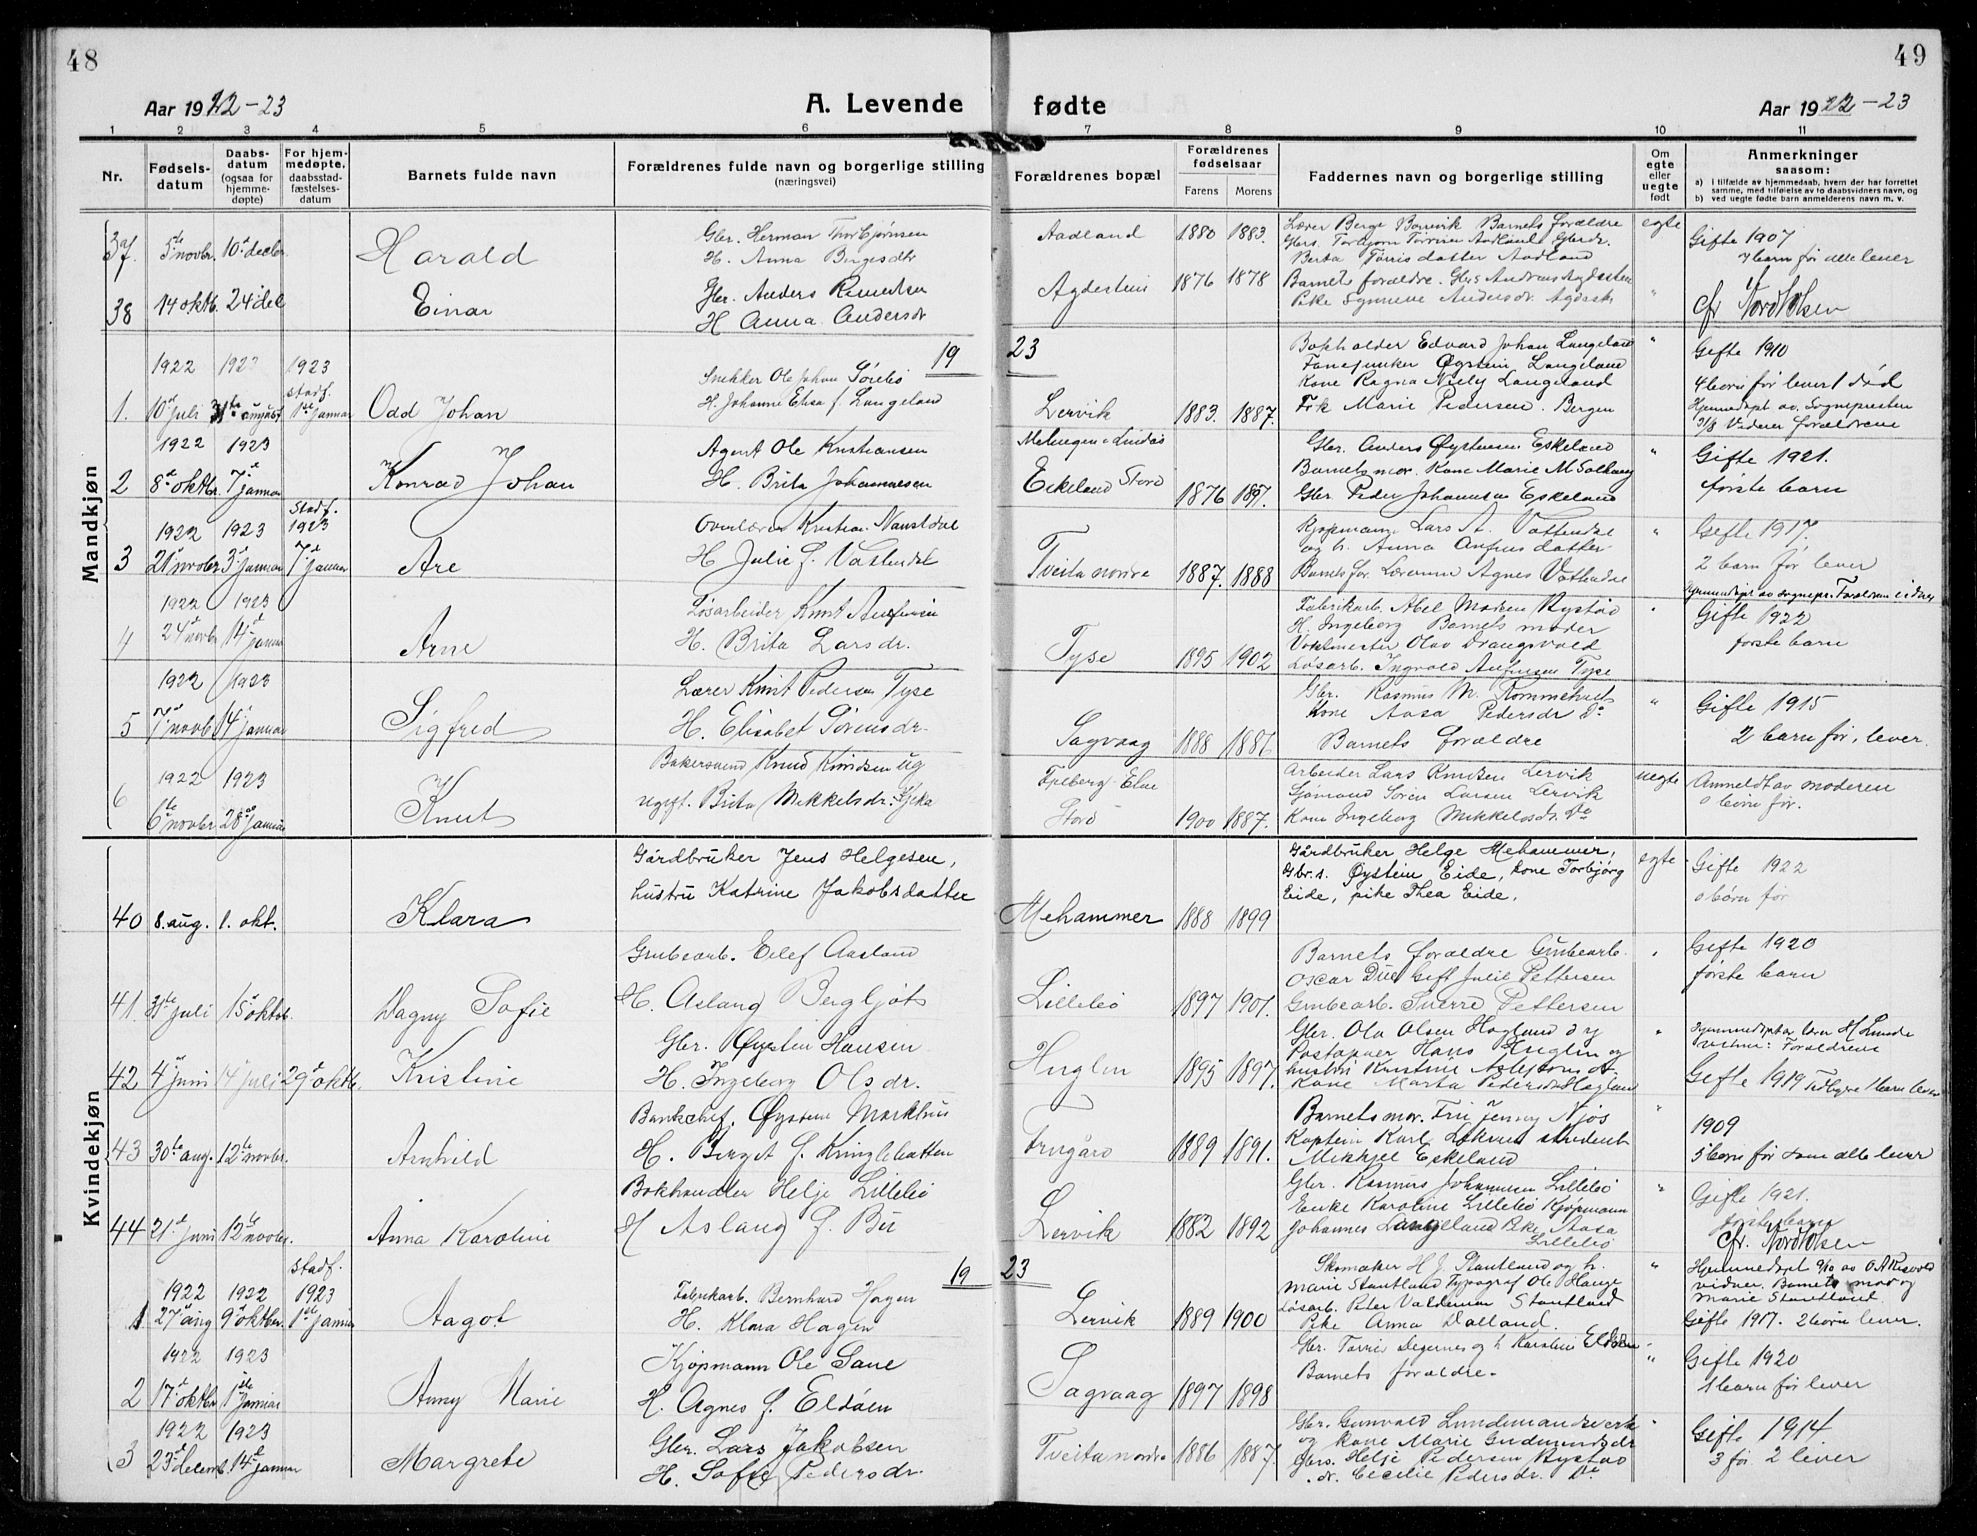 48
49
Aar 1922-23
A. Levende
fødte
Aar 1922-23
1 2 3 4 5 6 7 8 9 10 11
Nr.
Fødsels-
datum
Daabs-
datum
(ogsaa for
hjemme-
døpte)
For hjem-
medøpte,
daabsstad-
fæstelses-
datum
Barnets fulde navn
Forældrenes fulde navn og borgerlige stilling
(næringsvei)
Forældrenes bopæl
Forældrenes
fødselsaar
Farens Morens
Faddernes navn og borgerlige stilling
Om
egte
eller
uegte
født
Anmerkninger
saasom:
a) i tilfælde av hjemmedaab, hvem der har forrettet
samme, med tilføielse av to daabsvidners navn, og
b) ved uegte fødte barn anmelderens navn m. v.
Mandkjøn
37. 5te novbr. 10d decbr. Harald
Gbr. Herman Thorbjørnsen
H. Anna Bergesdtr
Aadland 1880 1883.
Lærer Berge Barnets forældre
Berta Torrisdatter Aadland
egte
Gifte 1907
7 barn før alle lever
38 14 oktb. 24 de Einar
Gbr. Anders
H Anna Andersdr
1876 1878
Barnets forældre.
Pike Synneve Andersdr.
"
19 23
1922 1923 1923
stadf.
1. 10d juli 1ste januar Odd Johan
Snekker Ole Johan Sørebø
H. Johanne Elisa f. Langeland
Lervik 1883. 1887.
Bokholder Edvard Johan Langeland
Øystein Langeland
Kone Ragna Langeland
Frk Marie Pedersen. Bergen
"
Gifte 1910
4 børn før lever 1 død
Hjemmedøpt av Sognepresten
Vidner forældrene
1922 1923
2 8d oktbr. 7d januar Konrad Johan
Agent Ole Kristiansen
H. Brita Johannesen
Eskeland Stord 1876 1897.
Gbr. Anders Øystensen Eskeland
Barnets mor. Kone Marie M.
Gbr Peder Johannesen Eskeland
"
Gifte 1921.
første barn
Stadf.
1922 1923 1923
3 21d novbr 3d januar 7d januar Are
Overlærer Kristian Naustdal
H Julie f. Vattendal
Tveita nordre 1887. 1888
Kjøpmann Lars A.
og h. Anna datter
Barnets far. Lærerinne Agnes
"
Gifte 1917.
2 barn før lever
1922 1923
4 24d novbr 14d januar Arne
Løsarbeider Knut
H. Brita Larsdr.
Tyse 1895 1902
Fabrikarb. Abel Madsen Rystad
H. Ingeborg Barnets moder
Olav Drangsvold
Løsarb. Ingvald Tyse
Gifte 1922
første barn
1922 1923
5 7d novb 14d januar Sigfred
Lærer Knut Pedersen Tyse
H. Elisabet Sørensdr.
Sagvaag 1888 1886
Gbr. Rasmus M.
Kone Aasa Pedersdr Do
Barnets forældre
"
Gifte 1915
2 barn før, lever.
1922 1923
6 6te novbr 28de januar Knut
Bakersvend Knud Knudsen ug
ugift. Brita Mikkelsdr.
Stord 1900 1887.
Arbeider Lars Knudsen Lervik
Sjømand Søren Larsen Lervik
Kone Ingeborg Mikkelsdr. Do
uegte
Anmeldt av moderen
0 børn før.
Kvindekjøn
40 8. aug. 1. okt. Klara
Gårdbruker Jens Helgesen,
hustru Katrine Jakobsdatter
Mehammer 1888 1899
Gårdbruker Helge Mehammer,
Gbr.s. Øystein Eide, kone Torbjørg
Eide, pike Thea Eide.
egte
Gifte 1922
0 børn før
41. 31te juli 15d oktob. Dagny Sofie
Grubearb. Eilef Aasland
H. Aslaug Bergljot
Lillebø 1897 1901.
Barnets forældre Grubearb.
Oscar Due Gift Julie Pettersen
Grubearb. Sverre Pettersen
Gifte 1920
første barn
42 4de juni 14d juli 29d oktb. Kristine
Gbr. Øysten Hansen
H. Ingeborg Olsdr.
Huglen 1895 1897.
Gbr. Ola Olsen Hogland
Postaapner Hans Huglen og
hustru Kristine
Kone Marta Pedersdr Hogland
"
Vidner: Forældrene
Gifte 1919 Tidligere 1 barn lever
43 30te aug. 12te novbr. Arnhild
Bankchef. Øystein Markhus
H. Berget f. Kringlebotten
Frugård 1889 1891.
Barnets mor. Fru Jenny Njøs
Kaptein Karl student
Mikkjel Eskeland
"
1909
5 børn før som alle lever
44 21d juni 12te novbr. Anna Karoline
Bokhandler Helje Lillebø
H Aslaug f. Bu
Lervik 1882 1892
Gbr. Rasmus Johannesen Lillebø
Enke Karoline Lillebø Kjøpmann
Johannes Langeland Pike Aasa
Lillebø
"
Gifte 1921.
første barn
19 23
stadf.
1922 1922 1923
1 27d aug 9d oktbr. 1ste januar Aagot
Fabrikarb. Bernhard Hagen
H. Klara Hagen
Lervik 1889 1900
Skomaker H. J. Stautland og h.
Marie Stautland Typograf Ole Hauge
Løsarb. Peter Valdemar Stautland
Pike Anna Dalland.
"
vidner. Barnets mor og
Marie Stautland
Gifte 1917. 2 børn lever.
1922 1923
2 17d oktbr 1ste januar Anny Marie
Kjøpmann Ole Sane
H. Agnes f. Eldøen
Sagvaag 1897 1898
Barnets forældre.
"
Gifte 1920
1 barn før lever
1922 1923
3 23d decemb. 14d januar Margrete
Gbr. Lars Jakobsen
H. Sofie Pedersdr.
Tveita nordre 1886 1887.
Gbr. Gunvald
og kone Marie
Gbrs. Helje Pedersen Rystad
dr. Cecilie Pedersdr. Do
"
Gifte 1914
3 før 2 lever